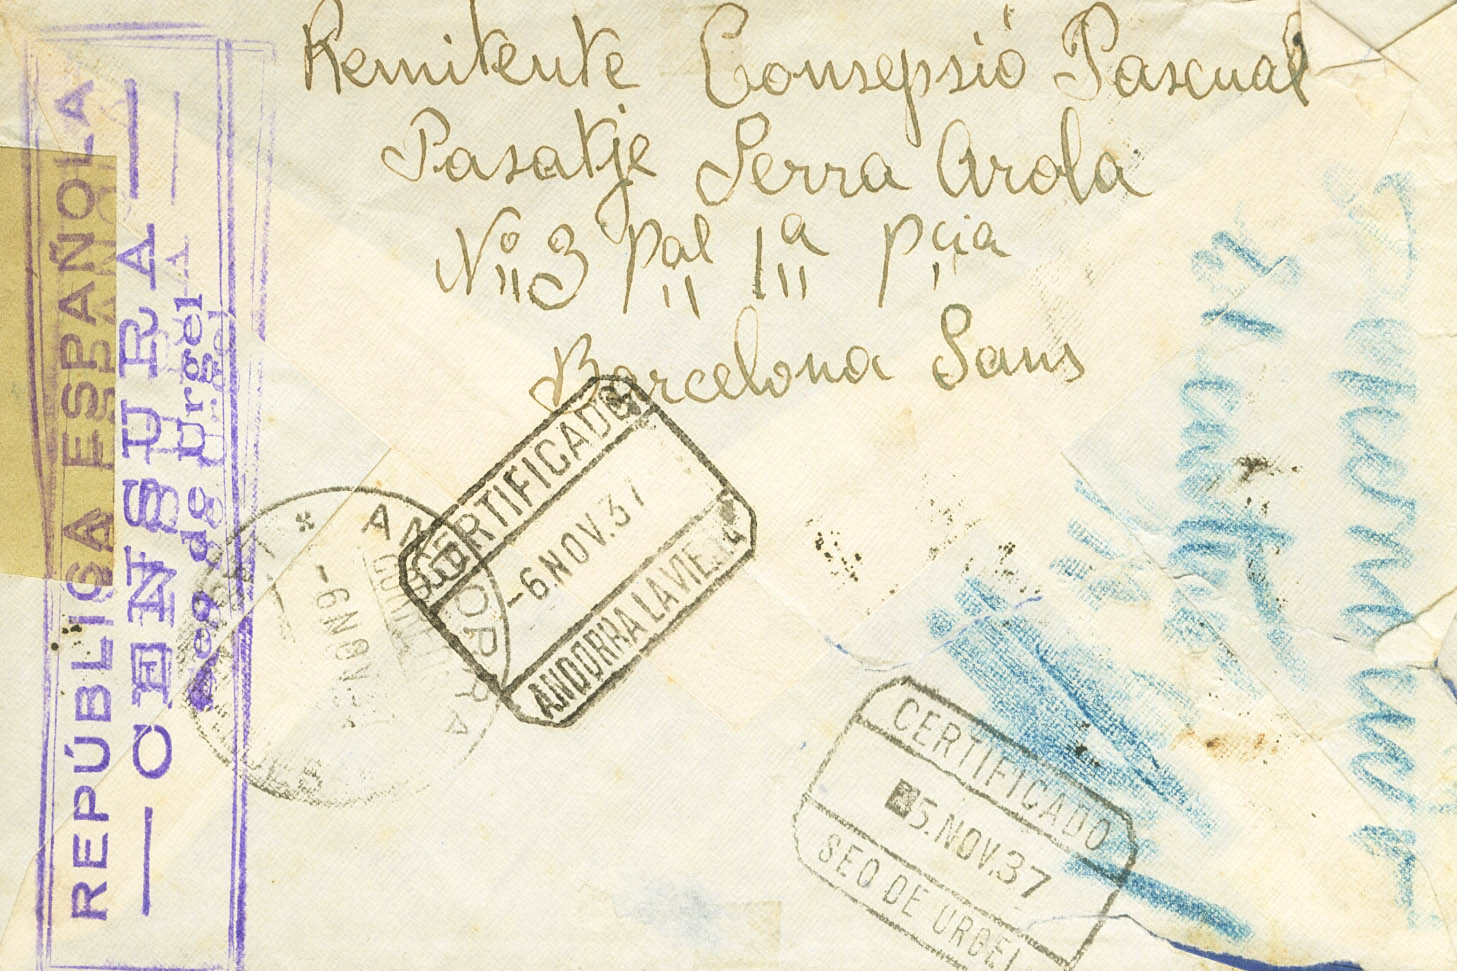 Remitente Consepsió Pascual
Pasatje Serra Arola
Nº 3 pal 1ª pcia
Barcelona Sans
REPÚBLICA ESPAÑOLA
CENSURA
Seo de Urgel
CERTIFICADO
-6 NOV. 37
ANDORRA LA VIEJA
ANDORRA
-6 NOV
CERTIFICADO
5. NOV. 37
SEO DE URGEL